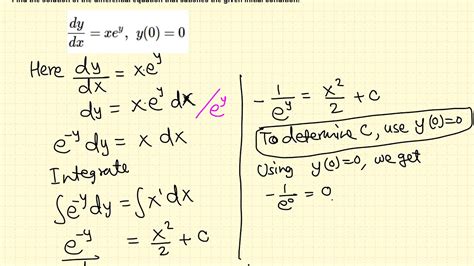 Find the solution of the differential equation that satisfies the given initial condition.
dy/dx = xe^y, y(0) = 0
Here dy/dx = x·e^y
dy = x·e^y dx /e^y
e^-y dy = x dx
Integrate
∫e^-y dy = ∫x' dx
e^-y = x²/2 + c
- 1/e^y = x²/2 + c
To determine C, use y(0)=0
Using y(0)=0, we get
- 1/e^0 = 0